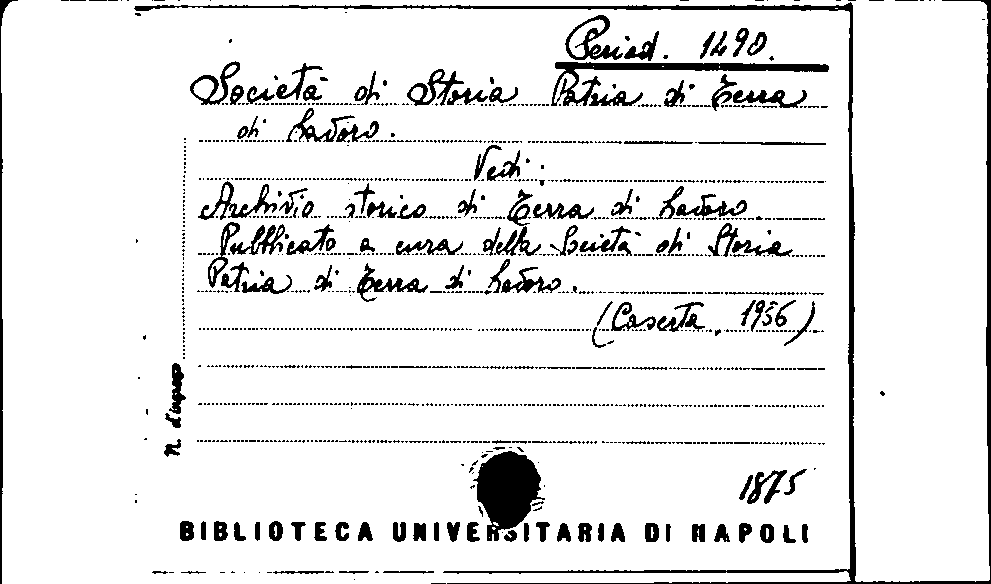 Period. 1490.
Società di Storia Patria di Terra
di Lavoro.
Vedi:
Archivio storico di Terra di Lavoro.
Pubblicato a cura della Società di Storia
Patria di Terra di Lavoro.
(Caserta, 1956).
N. d'ingresso
1875
BIBLIOTECA UNIVERSITARIA DI NAPOLI